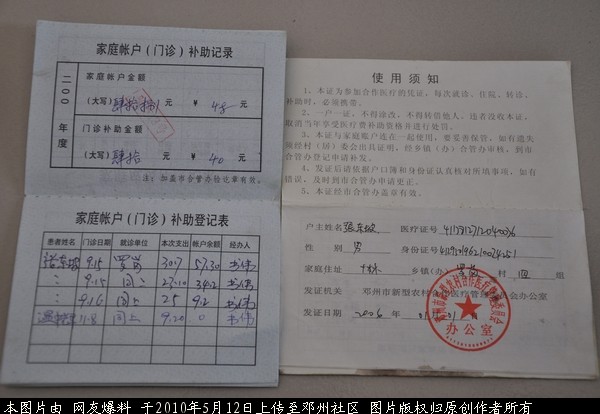 家庭帐户(门诊)补助记录
二00 年度
家庭帐户金额
(大写) 元 ¥ 45 元
门诊补助金额
(大写)肆拾 元 ¥ 40 元
注:加盖市合管办验讫章有效。
家庭帐户(门诊)补助登记表
患者姓名 门诊日期 就诊单位 本次支出 帐户余额 经办人
9.15 307 57.30
〃 9.15 34.2
〃 9.16 同上 25 9.2
11.8 同上 9.20 0
使用须知
1、本证为参加合作医疗的凭证,每次就诊、住院、转诊、
补助时,必须携带。
2、一户一证,不得涂改,不得转借他人,违者没收本证,
取消当年享受医疗费补助资格并进行处罚。
3、本证与家庭账户连在一起使用,要妥善保管,如有遗失
须经村(居)委会出具证明,经乡镇(办)合管办审核,到市
合管办登记申请补发。
4、发证后请依据户口簿和身份证认真核对所填事项,如有
错误,及时到市合管办申请更正。
5、本证经市合管办盖章有效。
户主姓名 张东坡 医疗证号
性别 男 身份证号
家庭住址 十林 乡镇(办) 村 四 组
发证机关 邓州市新型农村合作医疗管理委员会办公室
发证日期 2006 年
办公室
本图片由 网友爆料 于2010年5月12日上传至邓州社区 图片版权归原创作者所有